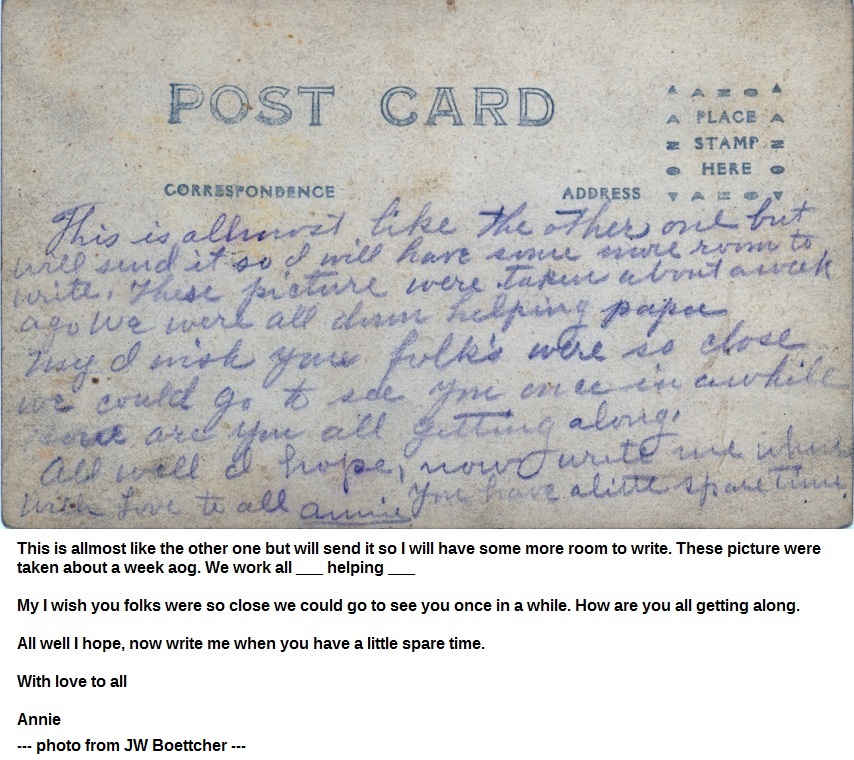 POST CARD
PLACE
STAMP
HERE
CORRESPONDENCE
ADDRESS
This is allmost like the other one but
will send it so I will have some more room to
write. These picture were taken about a week
ago We were all down helping papa
My I wish you folks were so close
we could go to see you once in awhile
How are you all getting along.
All well I hope, now write me when
you have a little spare time.
With Love to all Annie
This is allmost like the other one but will send it so I will have some more room to write. These picture were
taken about a week aog. We work all ___ helping ___
My I wish you folks were so close we could go to see you once in a while. How are you all getting along.
All well I hope, now write me when you have a little spare time.
With love to all
Annie
--- photo from JW Boettcher ---